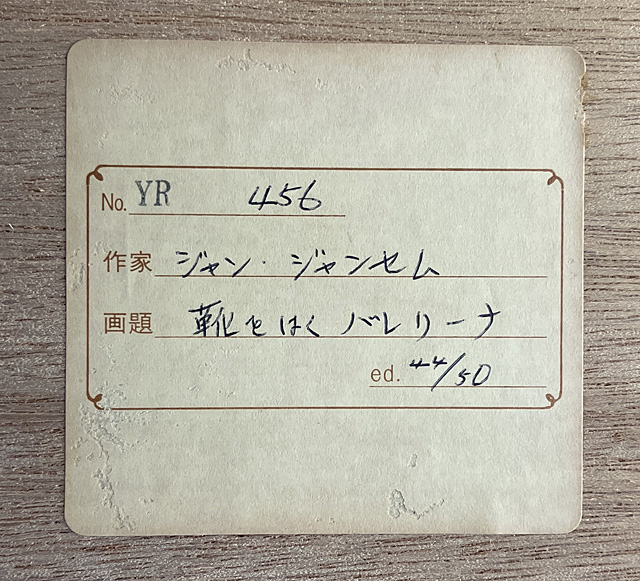 No. YR 456
作家 ジャン・ジャンセム
画題 靴をはくバレリーナ
ed. 44/50